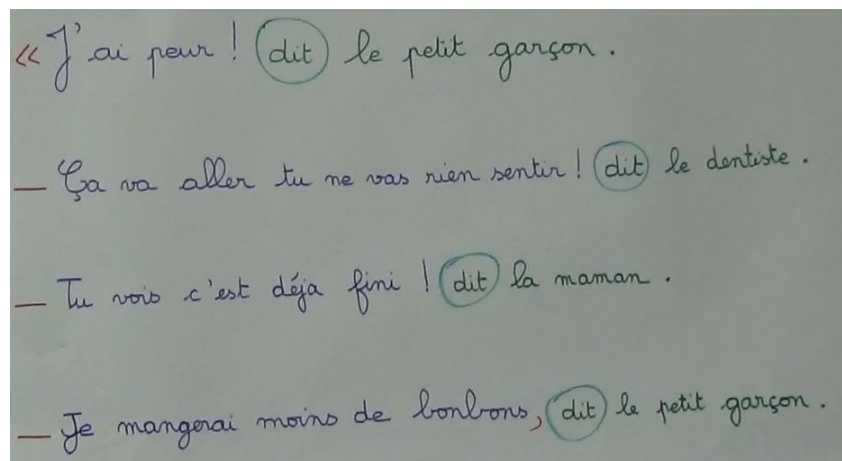 « J'ai peur ! dit le petit garçon.
— Ça va aller tu ne vas rien sentir ! dit le dentiste.
— Tu vois c'est déja fini ! dit la maman.
— Je mangerai moins de bonbons, dit le petit garçon.